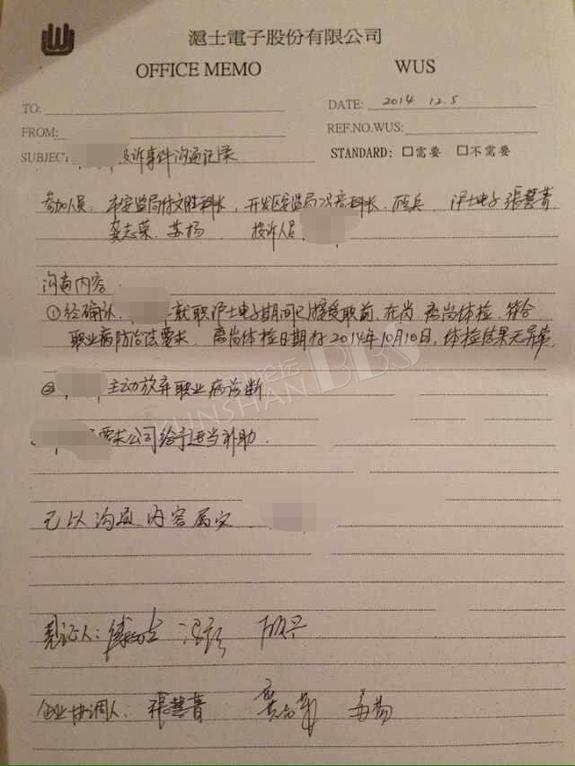 滬士電子股份有限公司
OFFICE MEMO WUS
TO: DATE: 2014 12.5
FROM: REF.NO.WUS:
SUBJECT: 投诉事件沟通记录 STANDARD: □需要 □不需要
参加人员: 市安监局 科长, 开发区安监局 科长, 沪士电子 張慧菁
龚志荣. 苏杨 投诉人员
沟通内容
①经确认. 就职沪士电子期间已接受职前. 在岗 离岗体检. 符合
职业病防治法要求. 离岗体检日期为2014年10月10日, 体检结果无异常.
② 主动放弃职业病诊断
要求公司给予适当补助.
已以沟通内容属实
見证人:
企业协调人: 張慧菁
KUNSHAN BBS